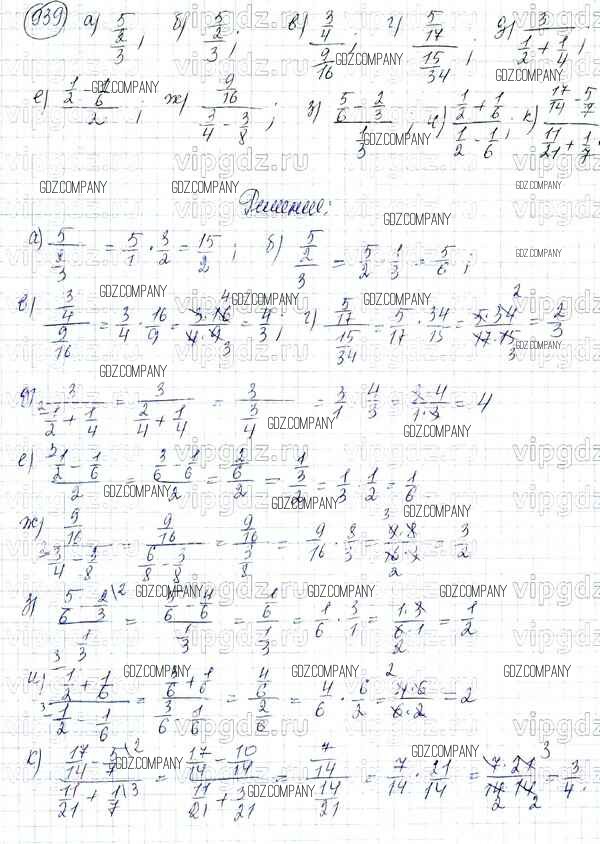 939 а) 5/(2/3); б) (5/2)/3; в) (3/4)/(9/16); г) (5/17)/(15/34); д) 3/(1/2 + 1/4);
е) (1/2 - 1/6)/2; ж) (9/16)/(3/4 - 3/8); з) (5/6 - 2/3)/(1/3); и) (1/2 + 1/6)/(1/2 - 1/6); к) (17/14 - 5/7)/(11/21 + 1/7)
Решение:
а) 5/(2/3) = 5/1 · 3/2 = 15/2; б) (5/2)/3 = 5/2 · 1/3 = 5/6;
в) (3/4)/(9/16) = 3/4 · 16/9 = = 4/3; г) (5/17)/(15/34) = 5/17 · 34/15 = (5·34)/(17·15) = 2/3
д) 3/(1/2 + 1/4) = 3/(2/4 + 1/4) = 3/(3/4) = 3/1 · 4/3 = (3·4)/(1·3) = 4
е) (1/2 - 1/6)/2 = (3/6 - 1/6)/2 = (2/6)/2 = (1/3)/2 = 1/3 · 1/2 = 1/6
ж) (9/16)/(3/4 - 3/8) = (9/16)/(6/8 - 3/8) = (9/16)/(3/8) = 9/16 · 8/3 = = 3/2
з) (5/6 - 2/3)/(1/3) = (5/6 - 4/6)/(1/3) = (1/6)/(1/3) = 1/6 · 3/1 = (1·3)/(6·1) = 1/2
и) (1/2 + 1/6)/(1/2 - 1/6) = (3/6 + 1/6)/(3/6 - 1/6) = (4/6)/(2/6) = 4/6 · 6/2 = (4·6)/(6·2) = 2
к) (17/14 - 5/7)/(11/21 + 1/7) = (17/14 - 10/14)/(11/21 + 3/21) = (7/14)/(14/21) = 7/14 · 21/14 = (7·21)/(14·14) = 3/4.
GDZ.COMPANY
vipgdz.ru